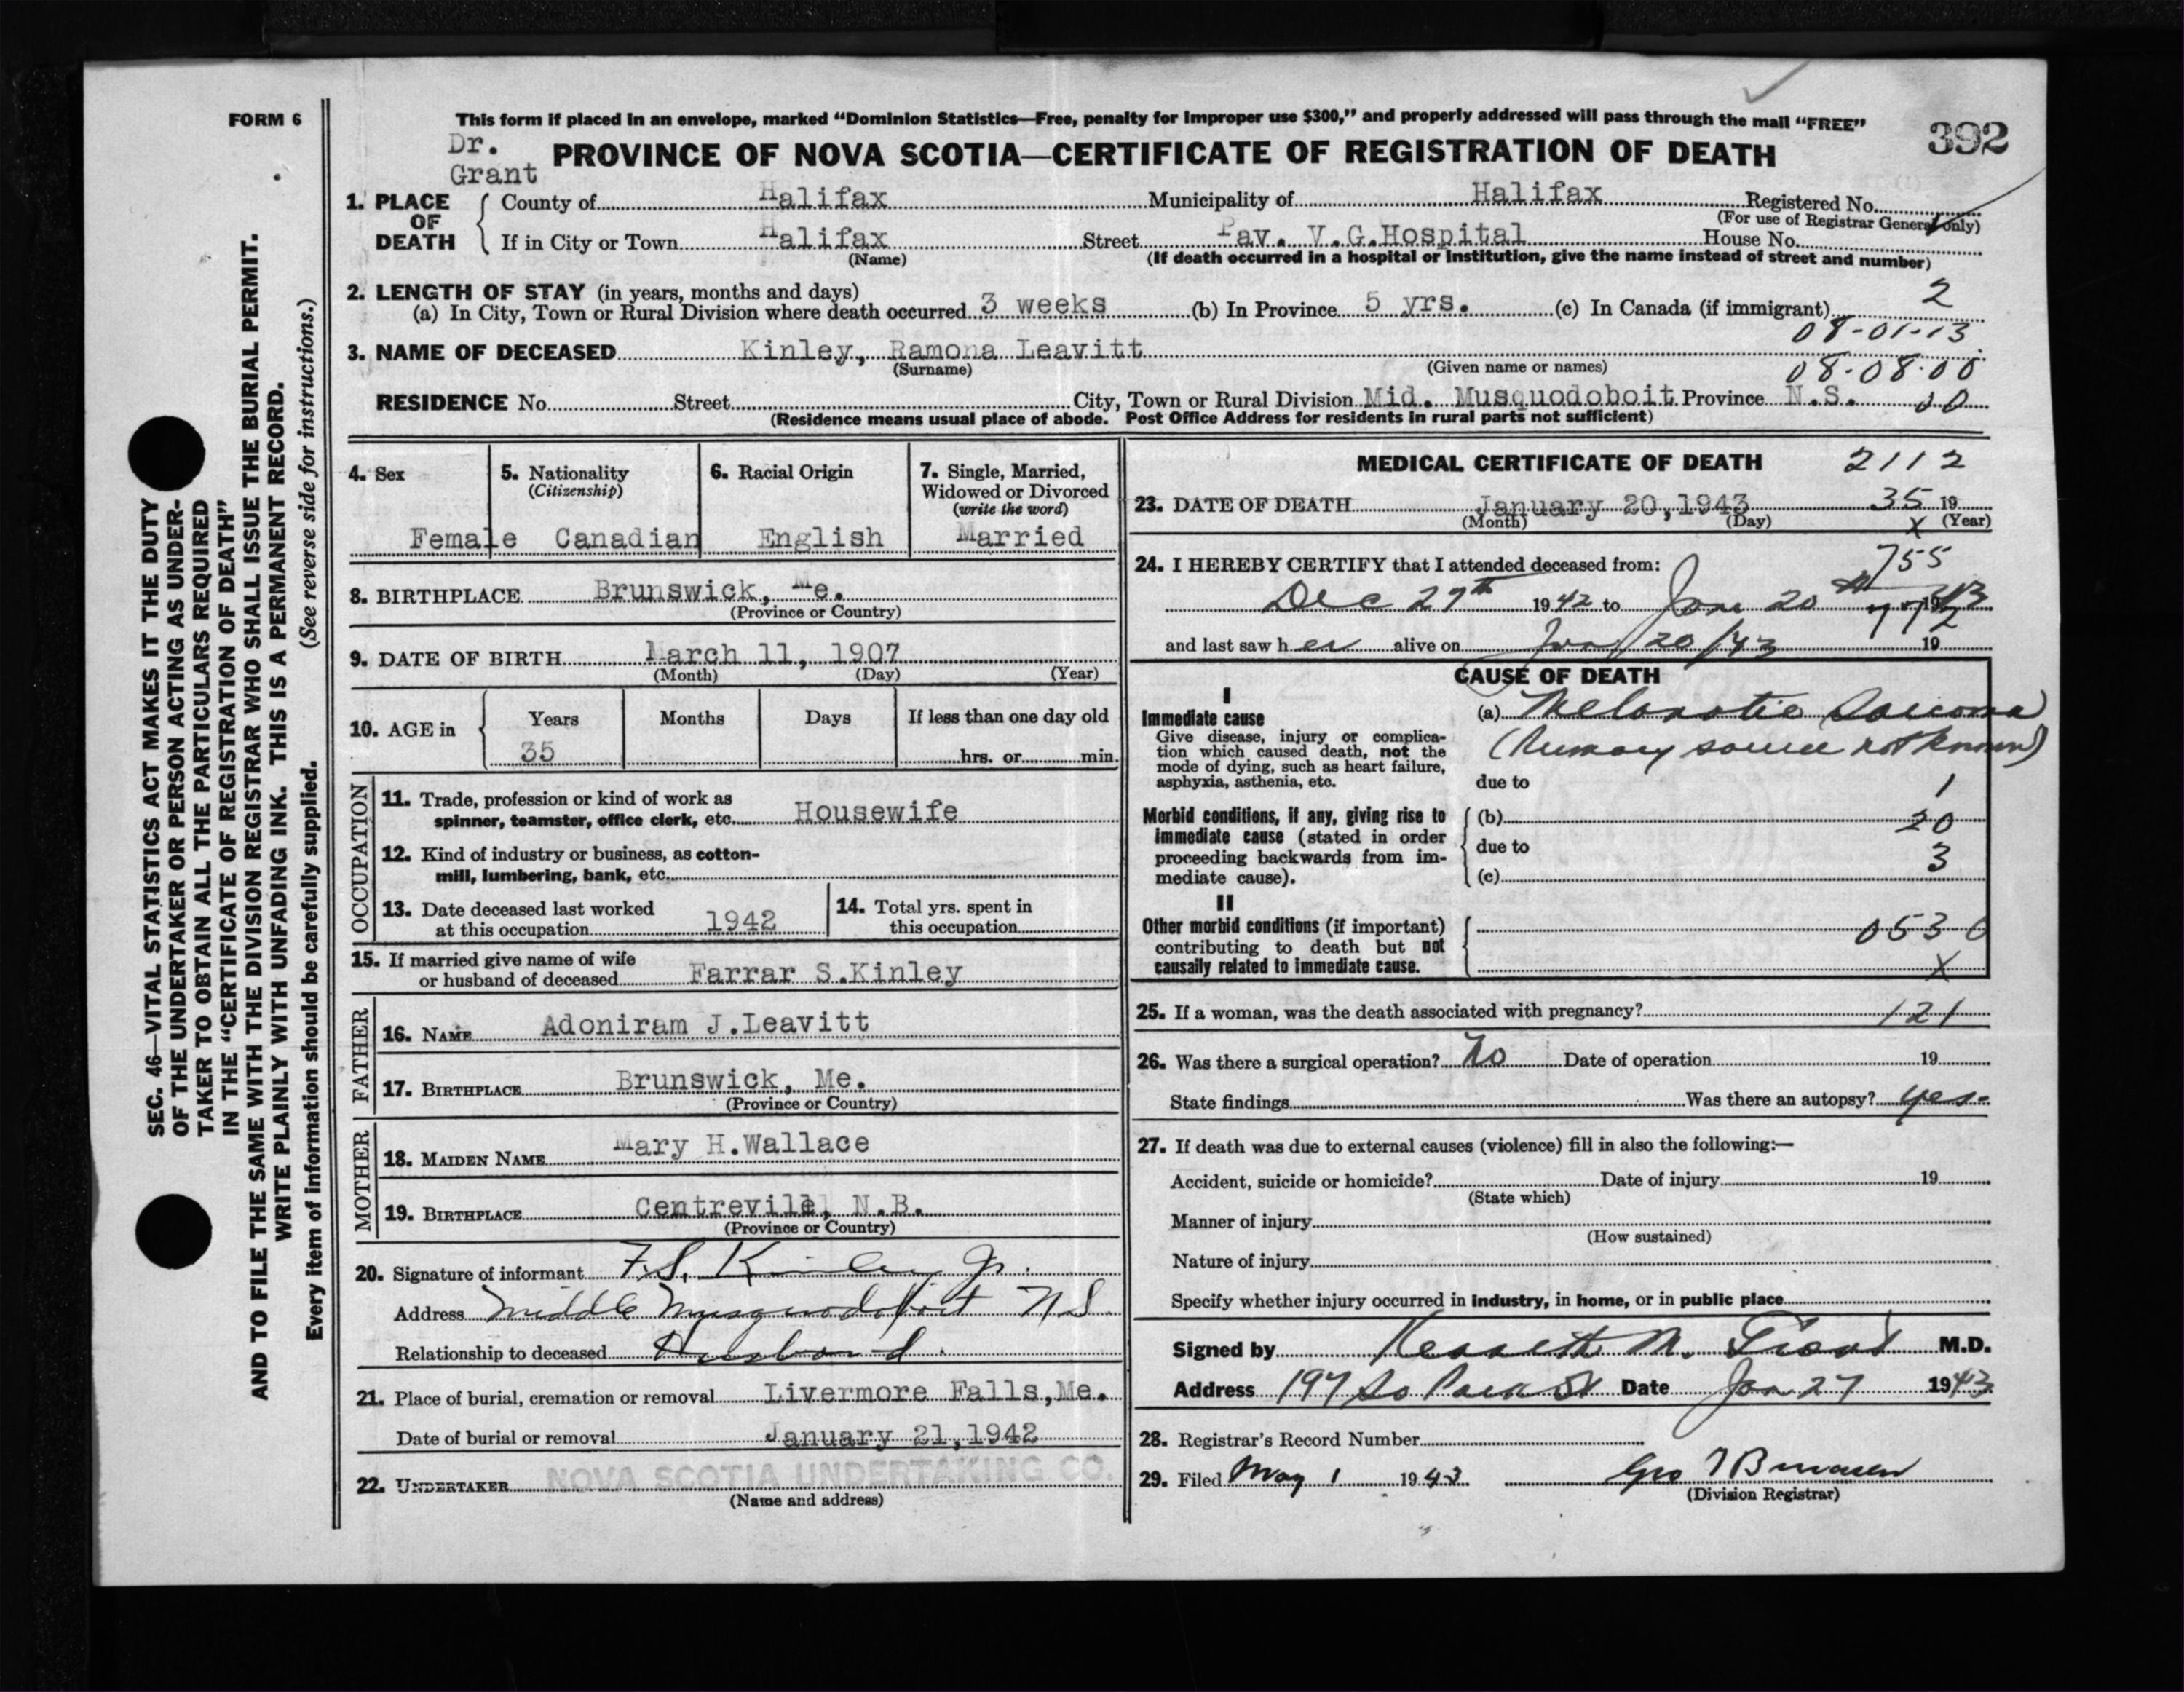 FORM 6
This form if placed in an envelope, marked “Dominion Statistics—Free, penalty for improper use $300,” and properly addressed will pass through the mail “FREE”
392
Dr.
Grant
PROVINCE OF NOVA SCOTIA—CERTIFICATE OF REGISTRATION OF DEATH
1. PLACE OF DEATH
County of Halifax Municipality of Halifax Registered No.
(For use of Registrar General only)
If in City or Town Halifax Street Pav. V.G.Hospital House No.
(Name) (If death occurred in a hospital or institution, give the name instead of street and number)
2. LENGTH OF STAY (in years, months and days)
(a) In City, Town or Rural Division where death occurred 3 weeks (b) In Province 5 yrs. (c) In Canada (if immigrant) 2
08-01-13
3. NAME OF DECEASED Kinley, Ramona Leavitt
(Surname) (Given name or names) 08-08-00
RESIDENCE No. Street City, Town or Rural Division Mid. Musquodoboit Province N.S. 00
(Residence means usual place of abode. Post Office Address for residents in rural parts not sufficient)
SEC. 46—VITAL STATISTICS ACT MAKES IT THE DUTY
OF THE UNDERTAKER OR PERSON ACTING AS UNDER-
TAKER TO OBTAIN ALL THE PARTICULARS REQUIRED
IN THE “CERTIFICATE OF REGISTRATION OF DEATH”
AND TO FILE THE SAME WITH THE DIVISION REGISTRAR WHO SHALL ISSUE THE BURIAL PERMIT.
WRITE PLAINLY WITH UNFADING INK. THIS IS A PERMANENT RECORD.
Every item of information should be carefully supplied. (See reverse side for instructions.)
4. Sex
Female
5. Nationality
(Citizenship)
Canadian
6. Racial Origin
English
7. Single, Married,
Widowed or Divorced
(write the word)
Married
8. BIRTHPLACE Brunswick, Me.
(Province or Country)
9. DATE OF BIRTH March 11, 1907
(Month) (Day) (Year)
10. AGE in
Years Months Days If less than one day old
35 hrs. or min.
OCCUPATION
11. Trade, profession or kind of work as
spinner, teamster, office clerk, etc. Housewife
12. Kind of industry or business, as cotton-
mill, lumbering, bank, etc.
13. Date deceased last worked
at this occupation 1942
14. Total yrs. spent in
this occupation
15. If married give name of wife
or husband of deceased Farrar S.Kinley
FATHER
16. NAME Adoniram J.Leavitt
17. BIRTHPLACE Brunswick, Me.
(Province or Country)
MOTHER
18. MAIDEN NAME Mary H.Wallace
19. BIRTHPLACE Centreville, N.B.
(Province or Country)
20. Signature of informant F.S. Kinley Jr.
Address Middle Musquodoboit N S
Relationship to deceased Husband.
21. Place of burial, cremation or removal Livermore Falls,Me.
Date of burial or removal January 21,1942
22. UNDERTAKER NOVA SCOTIA UNDERTAKING CO.
(Name and address)
MEDICAL CERTIFICATE OF DEATH 2112
23. DATE OF DEATH January 20,1943 35 19
(Month) (Day) X (Year)
24. I HEREBY CERTIFY that I attended deceased from: 755
Dec 27th 1942 to Jan 20 1943
772
and last saw her alive on Jan/20/43 19
CAUSE OF DEATH
I
Immediate cause
Give disease, injury or complica-
tion which caused death, not the
mode of dying, such as heart failure,
asphyxia, asthenia, etc.
(a) Melanotic Sarcoma
(Primary source not known)
due to 1
Morbid conditions, if any, giving rise to
immediate cause (stated in order
proceeding backwards from im-
mediate cause).
(b) 20
due to 3
(c)
II
Other morbid conditions (if important)
contributing to death but not
causally related to immediate cause.
0530
X
25. If a woman, was the death associated with pregnancy? 121
26. Was there a surgical operation? No Date of operation 19
State findings Was there an autopsy? yes-
27. If death was due to external causes (violence) fill in also the following:—
Accident, suicide or homicide? Date of injury 19
(State which)
Manner of injury
(How sustained)
Nature of injury
Specify whether injury occurred in industry, in home, or in public place
Signed by Kenneth M. Grant M.D.
Address 197 So Park St Date Jan 27 1943
28. Registrar's Record Number
29. Filed May 1 1943 Geo
(Division Registrar)